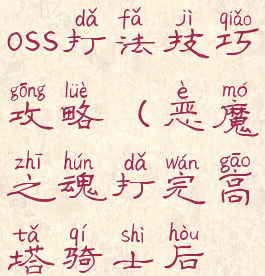 dǎ fǎ jì qiǎo
OSS打法技巧
gōng lüè è mó
攻略（恶魔
zhī hún dǎ wán gāo
之魂打完高
tǎ qí shì hòu
塔骑士后